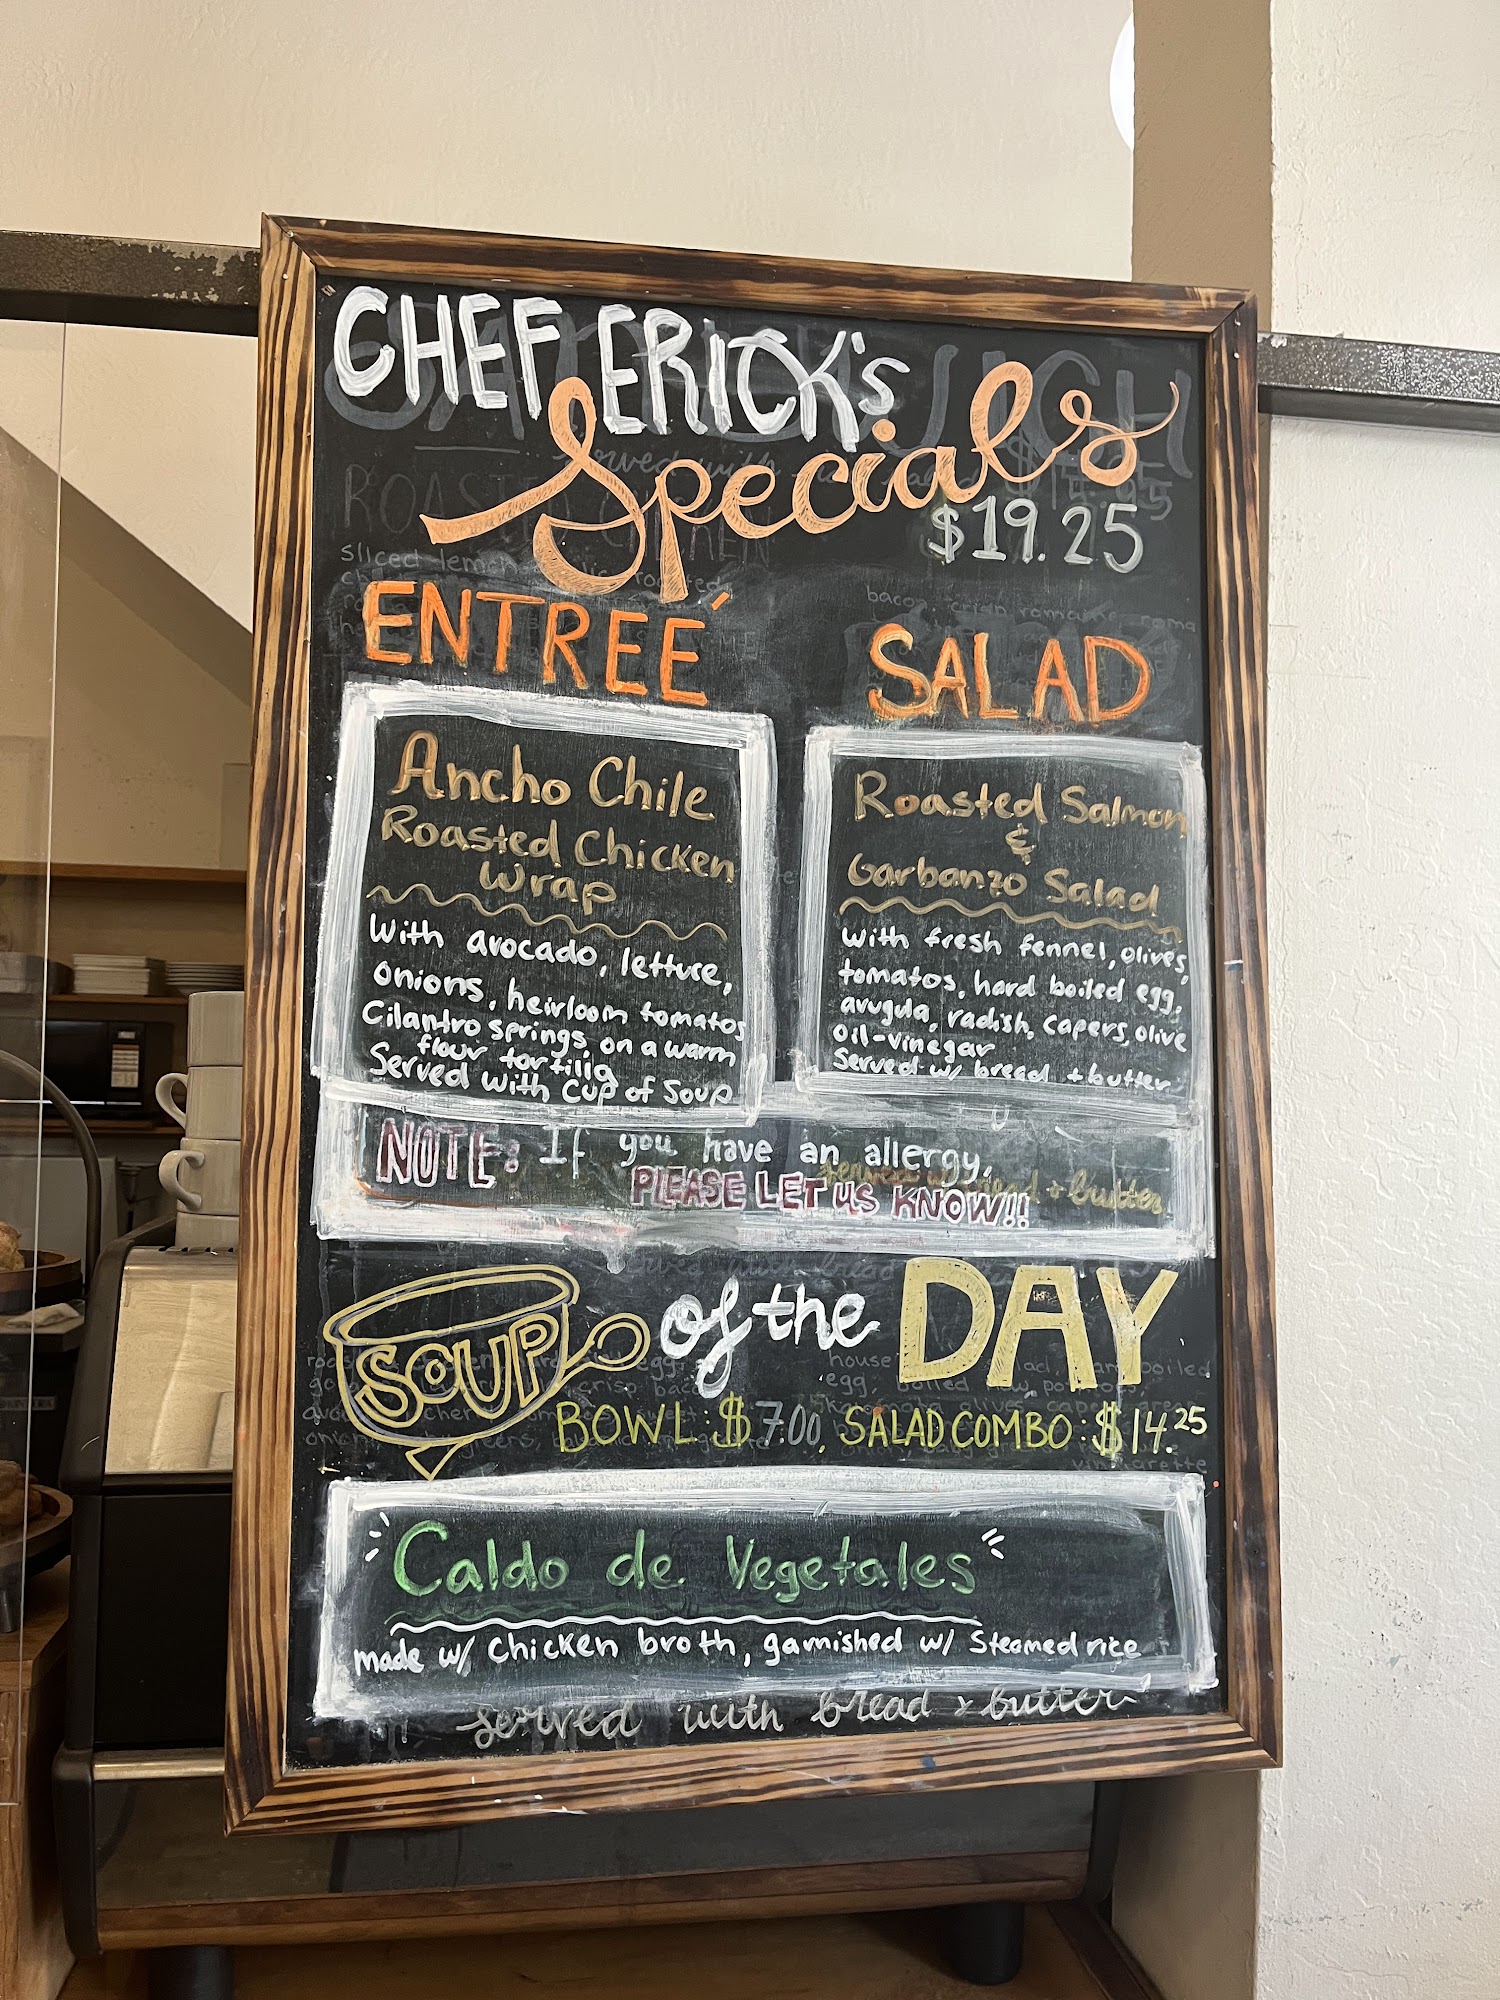 CHEF ERICK's
Specials
$19.25
ENTREÉ
Ancho Chile
Roasted Chicken
Wrap
With avocado, lettuce,
onions, heirloom tomatos
Cilantro springs, on a warm
flour tortilla
Served with Cup of Soup
SALAD
Roasted Salmon
&
Garbanzo Salad
With fresh fennel, olives,
tomatos, hard boiled egg,
arugula, radish, capers, olive
Oil-vinegar
Served w/ bread + butter
NOTE: If you have an allergy,
PLEASE LET US KNOW!!
+ butter
SOUP of the DAY
BOWL: $7.00, SALAD COMBO: $14.25
"Caldo de Vegetales"
made w/ Chicken broth, garnished w/ Steamed rice
served with bread & butter